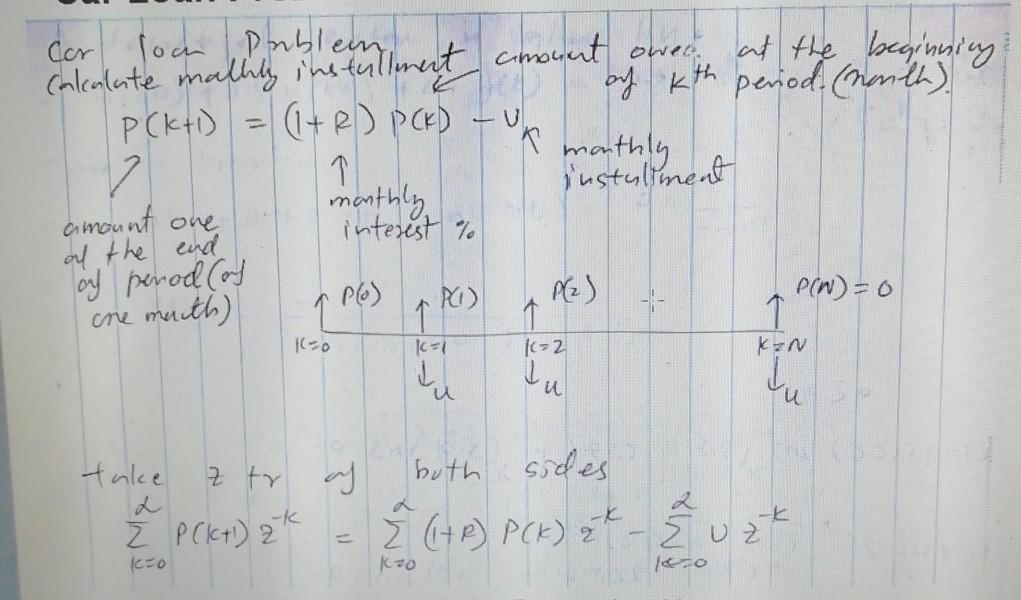 Car loan Problem
Calculate monthly installment
amount owed at the beginning
of kth period. (month).
P(k+1) = (1+R) P(k) - U
monthly
installment
monthly
interest %
amount one
of the end
of period (of
one month)
P(0) P(1) P(2) P(N) = 0
k=0 k=1 k=2 k=N
u u u
take z tr of both sides
∑ P(k+1) z^-k = ∑ (1+R) P(k) z^-k - ∑ U z^-k
k=0 k=0 k=0